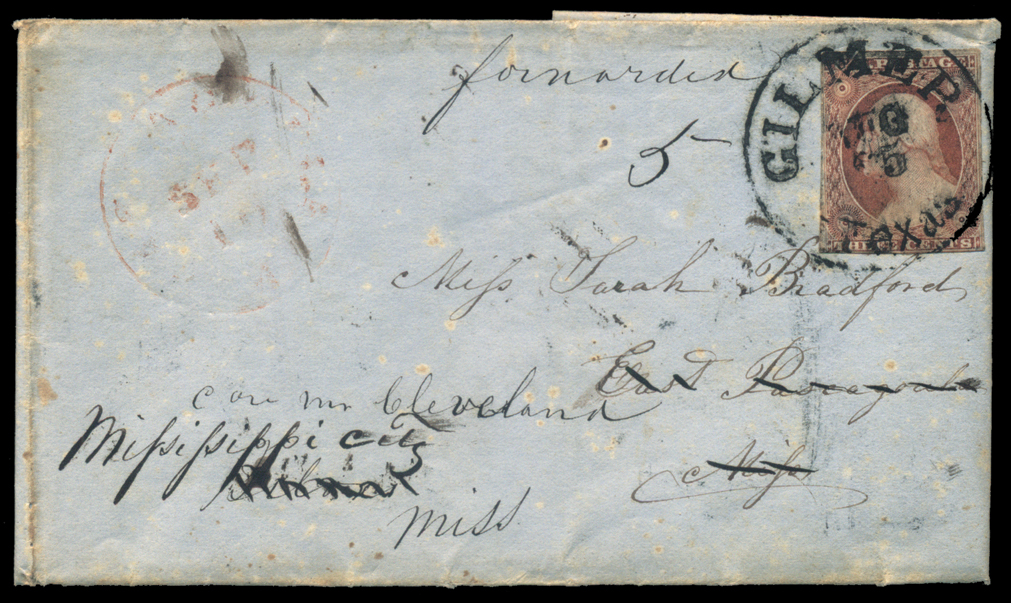 forwarded
5
GILMER
Texas
5
THREE CENTS
SEP
Miss Sarah Bradford
East
care mr Cleveland
Mississippi city
Miss
Miss